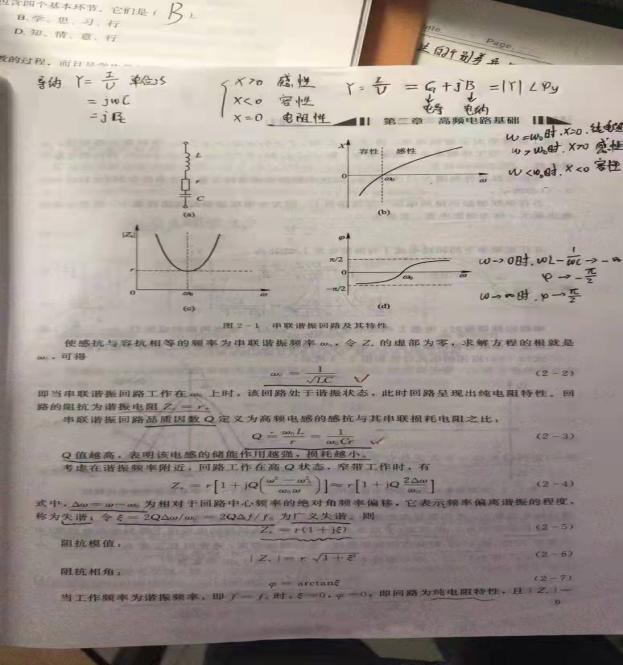 包含四个基本环节，它们是（ B ）
B. 学、思、习、行
D. 知、情、意、行
Page
导纳 Y=I/U 单位S
=jωC
=jB
X>0 感性
X<0 容性
X=0 电阻性
Y=I/U=G+jB=|Y|∠φy
电导 电纳
第二章 高频电路基础
ω=ω0时，X=0，纯电阻
ω>ω0时，X>0 感性
ω<ω0时，X<0 容性
L
r
C
(a)
X
容性 感性
0
ω0
ω
(b)
|Zs|
r
0
ω0
ω
(c)
φ
π/2
0
-π/2
ω0
ω
(d)
ω→0时，ωL-1/ωC→-∞
φ→-π/2
ω→∞时，φ→π/2
图 2-1 串联谐振回路及其特性
使感抗与容抗相等的频率为串联谐振频率 ω0，令 Zs 的虚部为零，求解方程的根就是
ω0，可得
ω0=1/√LC (2-2)
即当串联谐振回路工作在 ω0 上时，该回路处于谐振状态，此时回路呈现出纯电阻特性。回
路的阻抗为谐振电阻 Zs=r。
串联谐振回路品质因数 Q 定义为高频电感的感抗与其串联损耗电阻之比：
Q=ω0L/r=1/ω0Cr (2-3)
Q 值越高，表明该电感的储能作用越强，损耗越小。
考虑在谐振频率附近，回路工作在高 Q 状态，窄带工作时，有
Zs=r[1+jQ(ω²-ω0²/ω0ω)]≈r[1+jQ 2Δω/ω0] (2-4)
式中，Δω=ω-ω0 为相对于回路中心频率的绝对角频率偏移，它表示频率偏离谐振的程度，
称为失谐；令 ξ=2QΔω/ω0=2QΔf/f0 为广义失谐，则
Zs=r(1+jξ) (2-5)
阻抗模值：
|Zs|=r√1+ξ² (2-6)
阻抗相角：
φ=arctanξ (2-7)
当工作频率为谐振频率，即 f=f0 时，ξ=0，φ=0，即回路为纯电阻特性，且|Zs|=
9